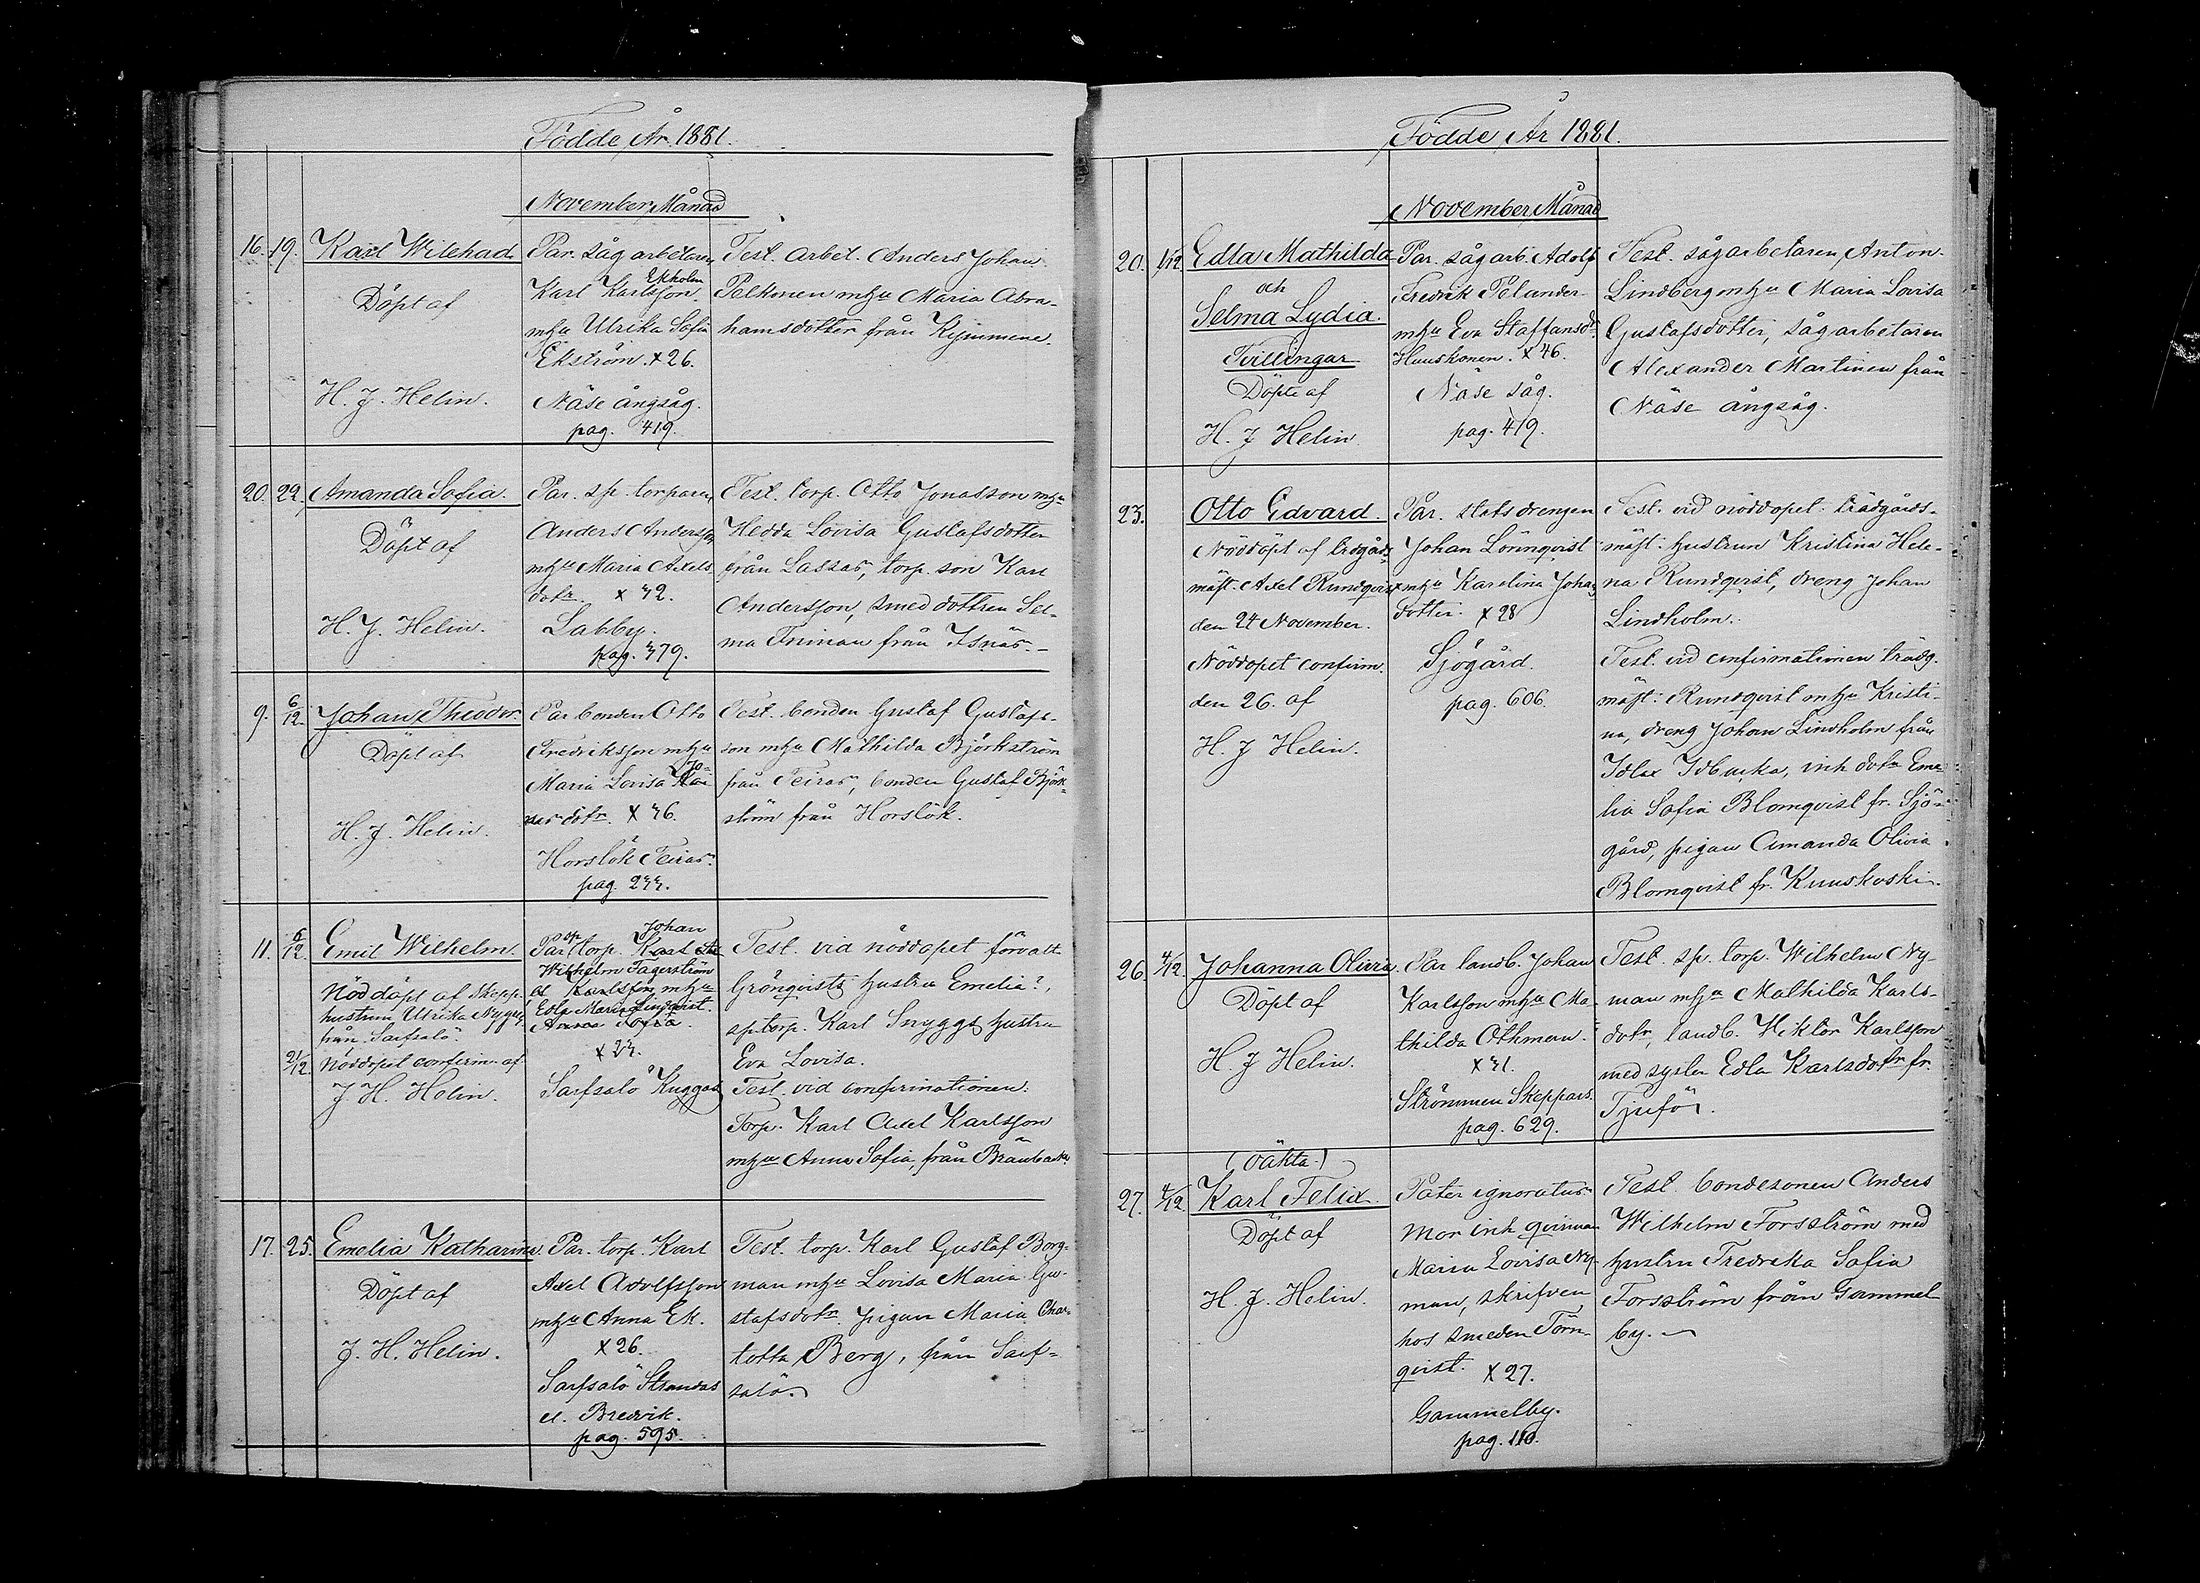 Födde År 1881.
November Månad
16. 19. Karl Wilehad
Döpt af
H. J. Helin.
Par. sågarbetaren
Ekholm
Karl Karlsson
mhu Ulrika Sofia
Ekström. x 26.
Näse ångsåg.
pag. 419.
Test. arbet. Anders Johan
Pelkonen mhu Maria Abra-
hamsdotter från Kymmene.
20. 22. Amanda Sofia.
Döpt af
H. J. Helin.
Par. sp. torparen
Anders Andersson
mhu Maria Axels
dotr. x 42.
Labby.
pag. 479.
Test. torp. Otto Jonasson mhu
Hedda Lovisa Gustafsdotter
från Lassas, torp. son Karl
Andersson, smed dottren Sel-
ma Friman från Isnäs.-
9. 6/12. Johan Theodor.
Döpt af
H. J. Helin.
Par bonden Otto
Fredriksson mhu
Jo-
Maria Lovisa
nas dotr. x 46.
Horslök Teiras.
pag. 244.
Test. bonden Gustaf Gustafs-
son mhu Mathilda Björkström
från Teiras, bonden Gustaf Björk-
ström från Horslök.
11. 6/12. Emil Wilhelm.
Nöddöpt af Skepp.
hustrun Ulrika Nygg
från Sarfsalö.
21/12. Nöddopet confirm. af
J. H. Helin.
Johan
Par sp. torp. Karl
Wilhelm Fagerström
el Karlsson mhu
Edla Maria Lindqvist.
Anna Sofia.
x 24.
Sarfsalö Kuggas
Test. vid nöddopet förvalt.
Grönqvists hustru Emelia?,
sp. torp. Karl Snyggs hustru
Eva Lovisa.
Test. vid confirmationen:
Torp. Karl Axel Karlsson
mhu Anna Sofia, från Bränbacka
17. 25. Emelia Katharina.
Döpt af
J. H. Helin.
Par. torp. Karl
Axel Adolfsson
mhu Anna Ek.
x 26.
Sarfsalö Strandas
el. Bredvik.
pag. 595.
Test. torp. Karl Gustaf Borg-
man mhu Lovisa Maria Gu-
stafsdotr. pigan Maria Char-
lotta Berg, från Sarf-
salö.
Födde År 1881.
November Månad
20. 1/12. Edla Mathilda
och
Selma Lydia.
Tvillingar
Döpte af
H. J Helin
Par. sågarb. Adolf
Fredrik Pelander
mhu Eva Staffansdr
Huuskonen. x 46.
Näse såg.
pag. 419.
Test. sågarbetaren, Anton
Lindberg mhu Maria Lovisa
Gustafsdotter, sågarbetaren
Alexander Martinen från
Näse ångsåg.
23. Otto Edvard.
Nöddöpt af trädgårds
mäst. Axel Rundqvist
den 24 November.
Nöddopet confirm.
den 26. af
H. J Helin.
Par. statsdrengen
Johan Lönnqvist
mhu Karolina Johans
dotter. x 28
Sjögård.
pag. 606.
Test. vid nöddopet: trädgårds-
mäst. hustrun Kristina Hele-
na Rundqvist, dreng Johan
Lindholm.
Test. vid confirmationen trädg.
mäst: Rundqvist mhu Kristi-
na, dreng Johan Lindholm från
Idlax Idbacka, inh dotr Eme-
lia Sofia Blomqvist fr. Sjö-
gård, pigan Amanda Olivia
Blomqvist fr. Kuuskoski.
26. 4/12. Johanna Olivia.
Döpt af
H. J Helin.
Par landb. Johan
Karlsson mhu Ma-
thilda Othman.
x 41.
Strömmen Skeppars.
pag. 629.
Test. sp. torp. Wilhelm Ny-
man mhu Mathilda Karls-
dotr, landb. Wiktor Karlsson
med syster Edla Karlsdotr fr.
Tjufö.
(oäkta)
27. 4/12. Karl Felix.
Döpt af
H. J. Helin.
Pater ignoratus
Mor inh qvinnan
Maria Lovisa Ny-
man, skrifven
hos smeden Törn-
qvist. x 27.
Gammelby.
pag. 110.
Test. bondesonen Anders
Wilhelm Forsström med
hustru Fredrika Sofia
Forsström från Gammel
by.